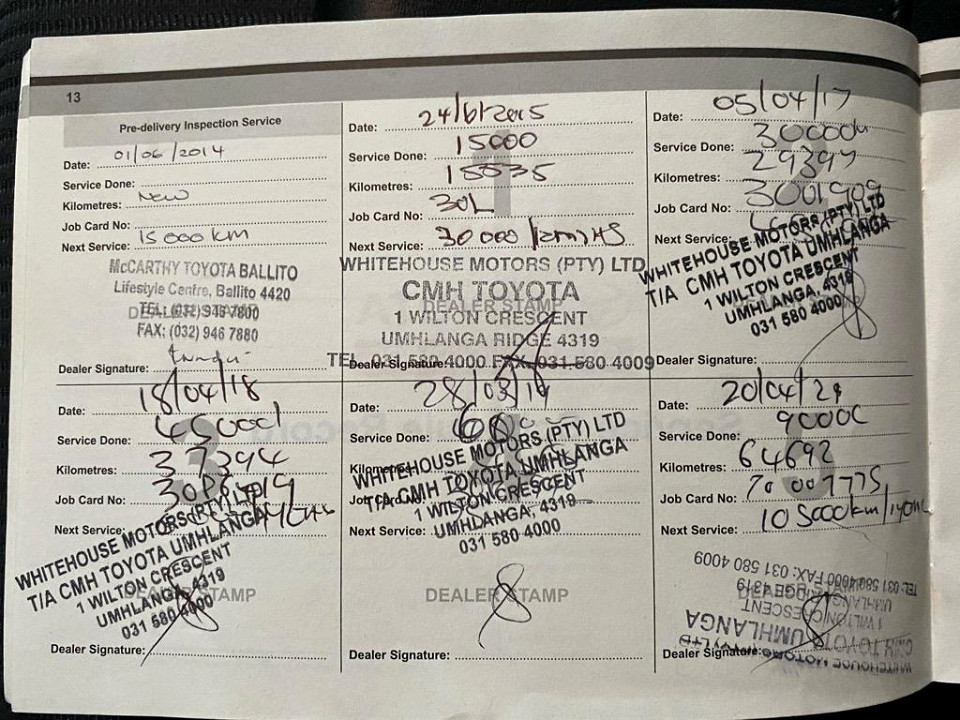 13
Pre-delivery Inspection Service
Date: 01/06/2014
Service Done:
Kilometres: New
Job Card No:
Next Service: 15 000 km
McCARTHY TOYOTA BALLITO
Lifestyle Centre, Ballito 4420
TEL: (032) 946 7800
FAX: (032) 946 7880
Dealer Signature:
Date: 24/6/2015
Service Done: 15000
Kilometres: 15535
Job Card No: 30L
Next Service: 30 000
WHITEHOUSE MOTORS (PTY) LTD
CMH TOYOTA
DEALER STAMP
1 WILTON CRESCENT
UMHLANGA RIDGE 4319
TEL. 031 580 4000 FAX. 031 580 4009
Dealer Signature:
Date: 05/04/17
Service Done: 30000
Kilometres: 29397
Job Card No: 3001909
Next Service:
WHITEHOUSE MOTORS (PTY) LTD
T/A CMH TOYOTA UMHLANGA
1 WILTON CRESCENT
UMHLANGA, 4319
031 580 4000
Dealer Signature:
Date: 18/04/18
Service Done: 45000
Kilometres: 37394
Job Card No:
Next Service:
WHITEHOUSE MOTORS (PTY) LTD
T/A CMH TOYOTA UMHLANGA
1 WILTON CRESCENT
UMHLANGA, 4319
031 580 4000
DEALER STAMP
Dealer Signature:
Date: 28/03/19
Service Done:
Kilometres:
Job Card No:
Next Service:
WHITEHOUSE MOTORS (PTY) LTD
T/A CMH TOYOTA UMHLANGA
1 WILTON CRESCENT
UMHLANGA, 4319
031 580 4000
DEALER STAMP
Dealer Signature:
Date: 20/04/21
Service Done: 90000
Kilometres: 64692
Job Card No:
Next Service: 105000km
TEL: 031 580 4000 FAX: 031 580 4009
UMHLANGA RIDGE 4319
1 WILTON CRESCENT
CMH TOYOTA UMHLANGA
WHITEHOUSE MOTORS (PTY) LTD
Dealer Signature: